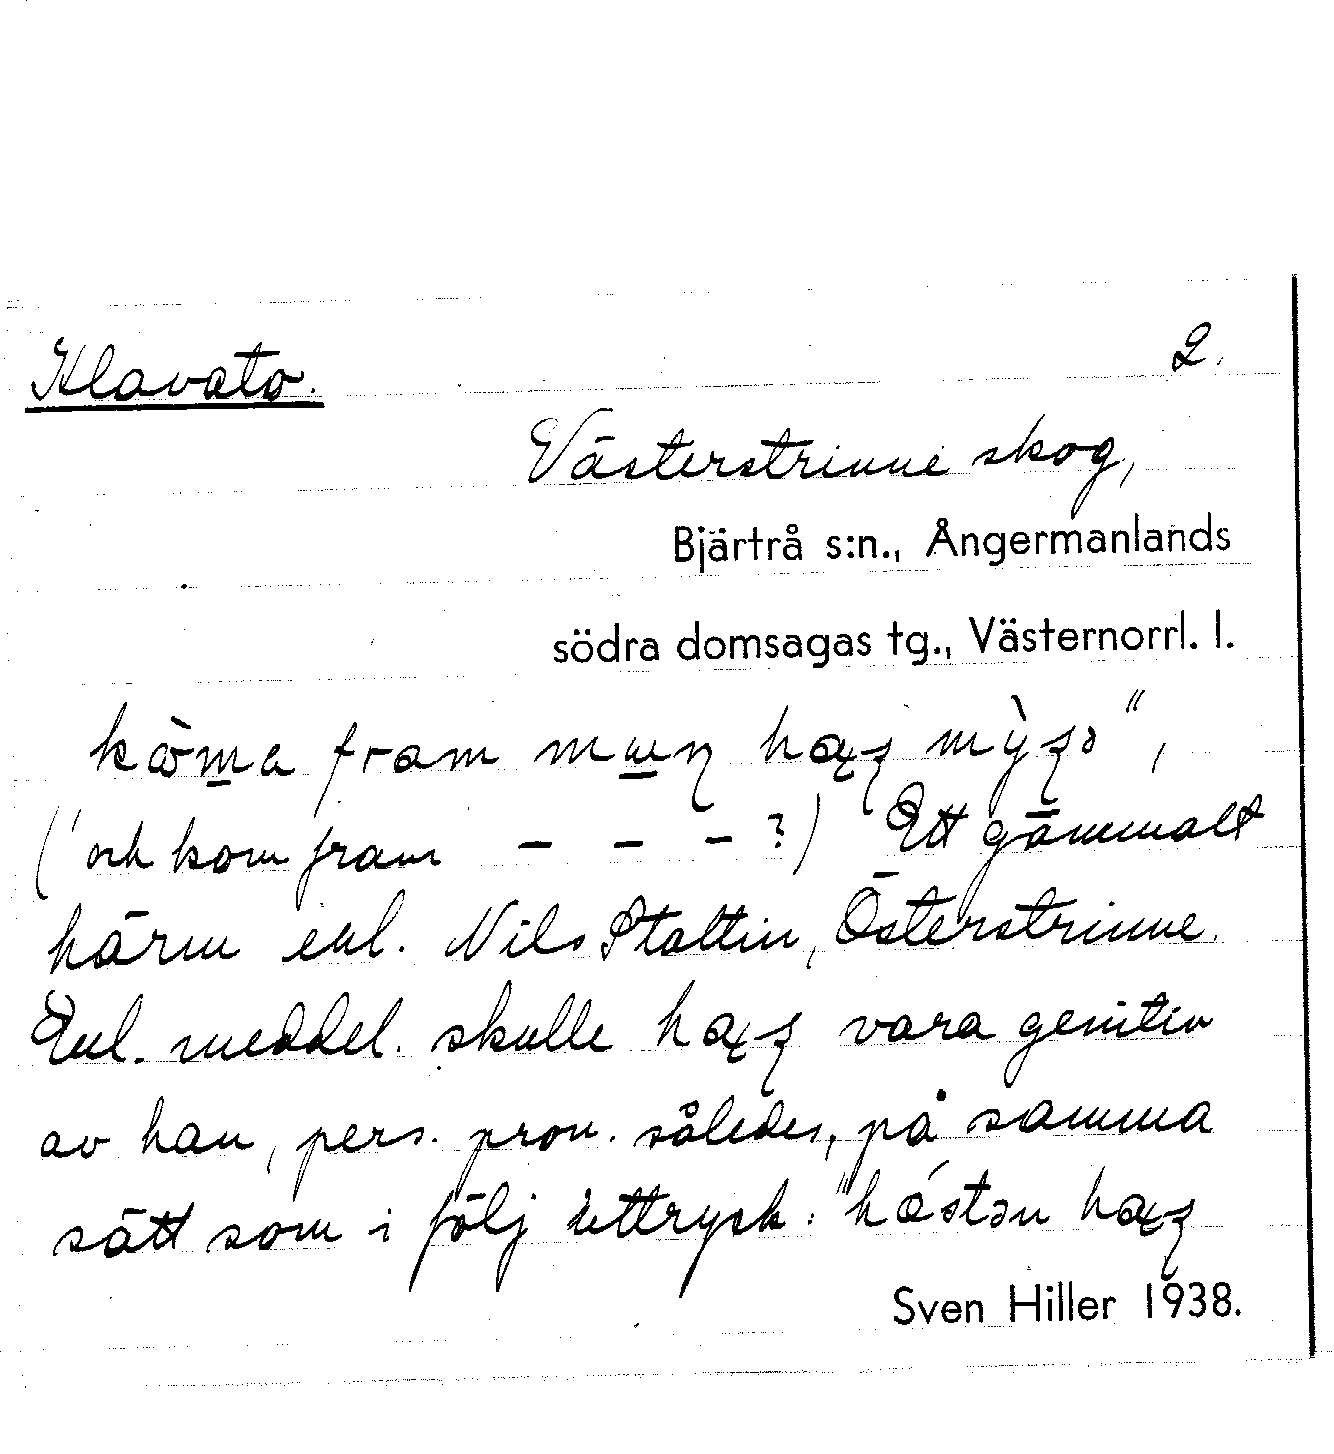 Klavato. 2.
Västerstrinne skog,
Bjärtrå s:n., Ångermanlands
södra domsagas tg., Västernorrl. l.
fram
("och kom fram – – – ?) Ett gammalt
härm enl. Nils Stattin, Österstrinne.
Enl. meddel. skulle vara genitiv
av han, pers. pron. således, på samma
sätt som i följ uttryck:
Sven Hiller 1938.